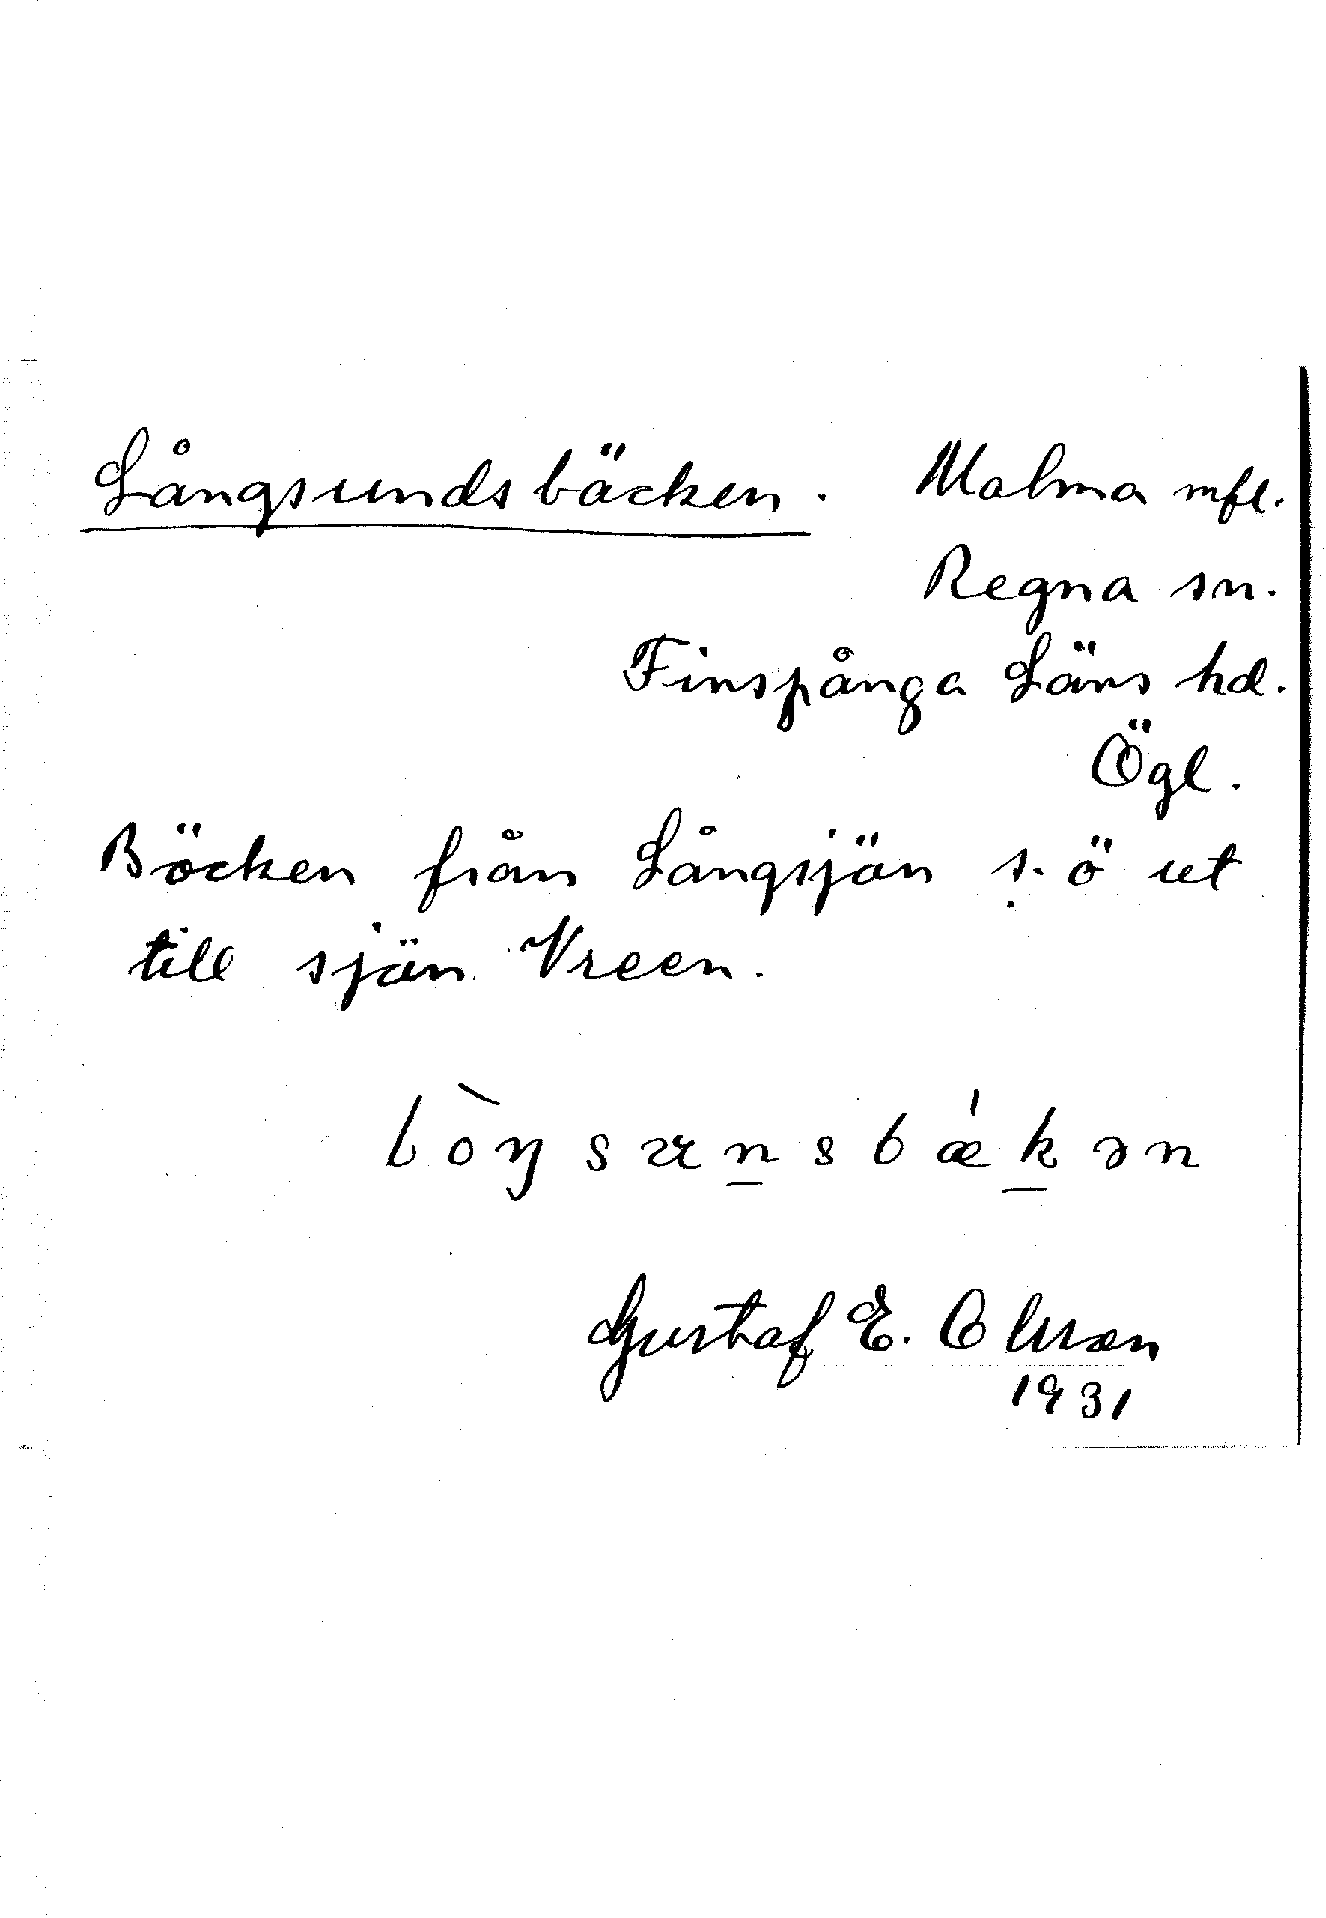 Långsundsbäcken. Malma mfl.
Regna sn.
Finspånga Läns hd.
Ögl.
Bäcken från Långsjön s. ö ut
till sjön Vreen.
lòŋsunsbǽkən
Gustaf E. Olsson
1931